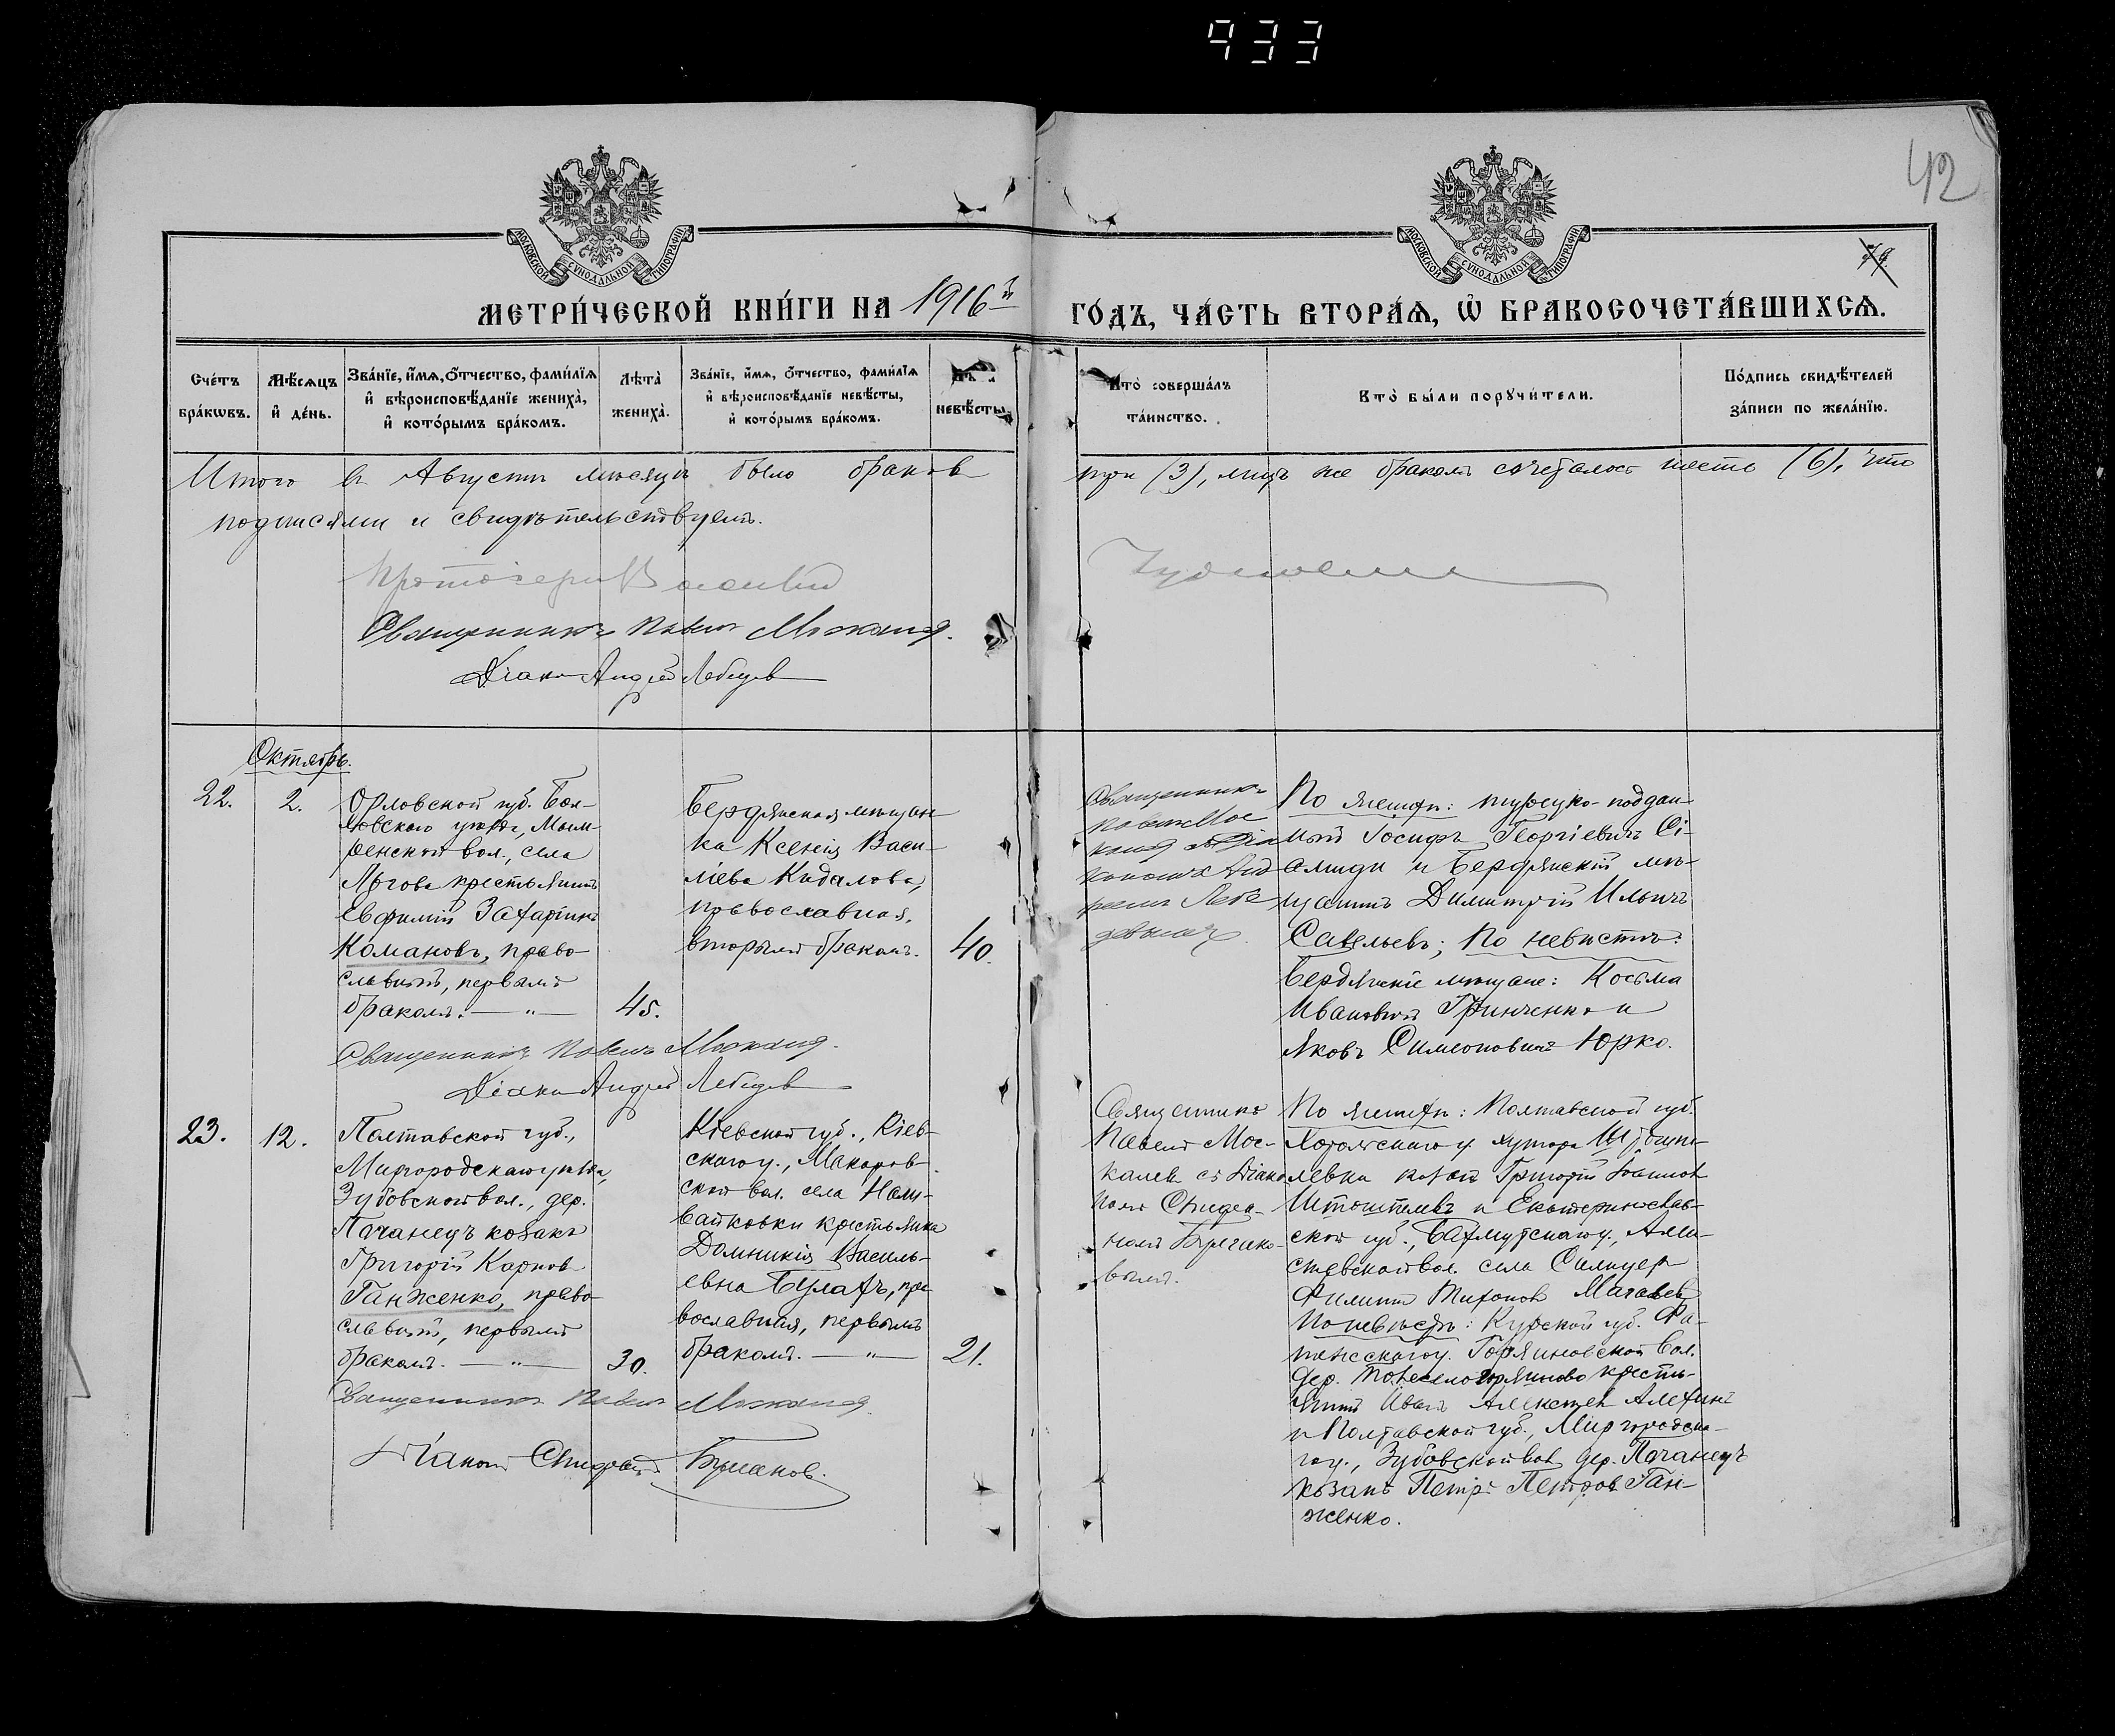 933
42
79
МОСКОВСКОЙ СѴНОДАЛЬНОЙ ТИПОГРАФІИ
МОСКОВСКОЙ СѴНОДАЛЬНОЙ ТИПОГРАФІИ
МЕТРИ́ЧЕСКОЙ КНИ́ГИ НА 1916й ГО́ДЪ, ЧА́СТЬ ВТОРА́Ѧ, Ѽ БРАКОСОЧЕТА́ВШИХСѦ.
Сче́тъ бра́кѡвъ.
Мѣ́сяцъ и҆ де́нь.
Зва́нїе, и҆́мѧ, ѻ҆́тчество, фами́лїѧ и҆ вѣроисповѣ́данїе жениха̀, и҆ кото́рымъ бра́комъ.
Лѣта̀ жениха̀.
Зва́нїе, и҆́мѧ, ѻ҆́тчество, фами́лїѧ и҆ вѣроисповѣ́данїе невѣ́сты, и҆ кото́рымъ бра́комъ.
невѣ́сты.
Кто̀ соверша́лъ та́инство.
Кто̀ бы́ли порꙋчи́тели.
По́дпись свидѣ́телей за́писи по жела́нїю.
Итого в Августѣ мѣсяцѣ было браков три (3), лицъ же бракомъ сочеталось шесть (6), что
подписями и свидѣтельствуемъ.
Протоіерей Василій
Священникъ Павелъ Москалев.
Діаконъ Андрей Лебедев
Октябрь.
22.
2.
Орловской губ. Бол-
ховского уѣзда,
вол., села
Льгова крестьянинъ
Евфимій Захаріинъ
Комановъ, право-
славный, первымъ
бракомъ. — " —
45.
Бердянская мѣщан-
ка Ксенія Васи-
ліева Кидалова,
православная,
вторымъ бракомъ.
40.
Священникъ
Павелъ Мос
калев с Діа
кономъ Анд
реемъ Лебе
девымъ
По женихѣ: турецко-поддан-
ный Іосифъ Георгіевичъ Сі-
амиди и Бердянскій мѣ-
щанинъ Димитрій Ильичъ
Савельевъ; По невѣстѣ:
Бердянскіе мѣщане: Косьма
Ивановичъ Гринченко и
Яковъ Симеоновичъ Юрко.
Священникъ Павелъ Москалев.
Діаконъ Андрей Лебедев
23.
12.
Полтавской губ.,
Миргородскаго уѣзда,
Зубовской вол., дер.
Пачанецъ козакъ
Григорій Карпов
Ганженко, право-
славный, первымъ
бракомъ. — " —
30.
Кіевской губ., Кіев-
скаго у., Макаров-
ской вол. села Нали-
вайковки крестьянка
Домникія Василь-
евна Булахъ, пра
вославная, первымъ
бракомъ. — " —
21.
Священникъ
Павелъ Мос-
калев съ Діако
номъ
По женихѣ: Полтавской губ.
у. хутора
левки козакъ Григорій Іоаннов
и Екатеринослав-
ской губ., Бахмутскаго у.,
вол. села
Филиппъ Тихонов
По невѣстѣ: Курской губ. Фа-
тежскаго у. вол.
дер. кресть-
янинъ Иванъ Алексѣев Алехинъ
и Полтавской губ., Миргородска-
го у., Зубовской вол дер. Пачанецъ
козакъ Петръ Петров Ган-
женко.
Священникъ Павелъ Москалев
Діаконъ